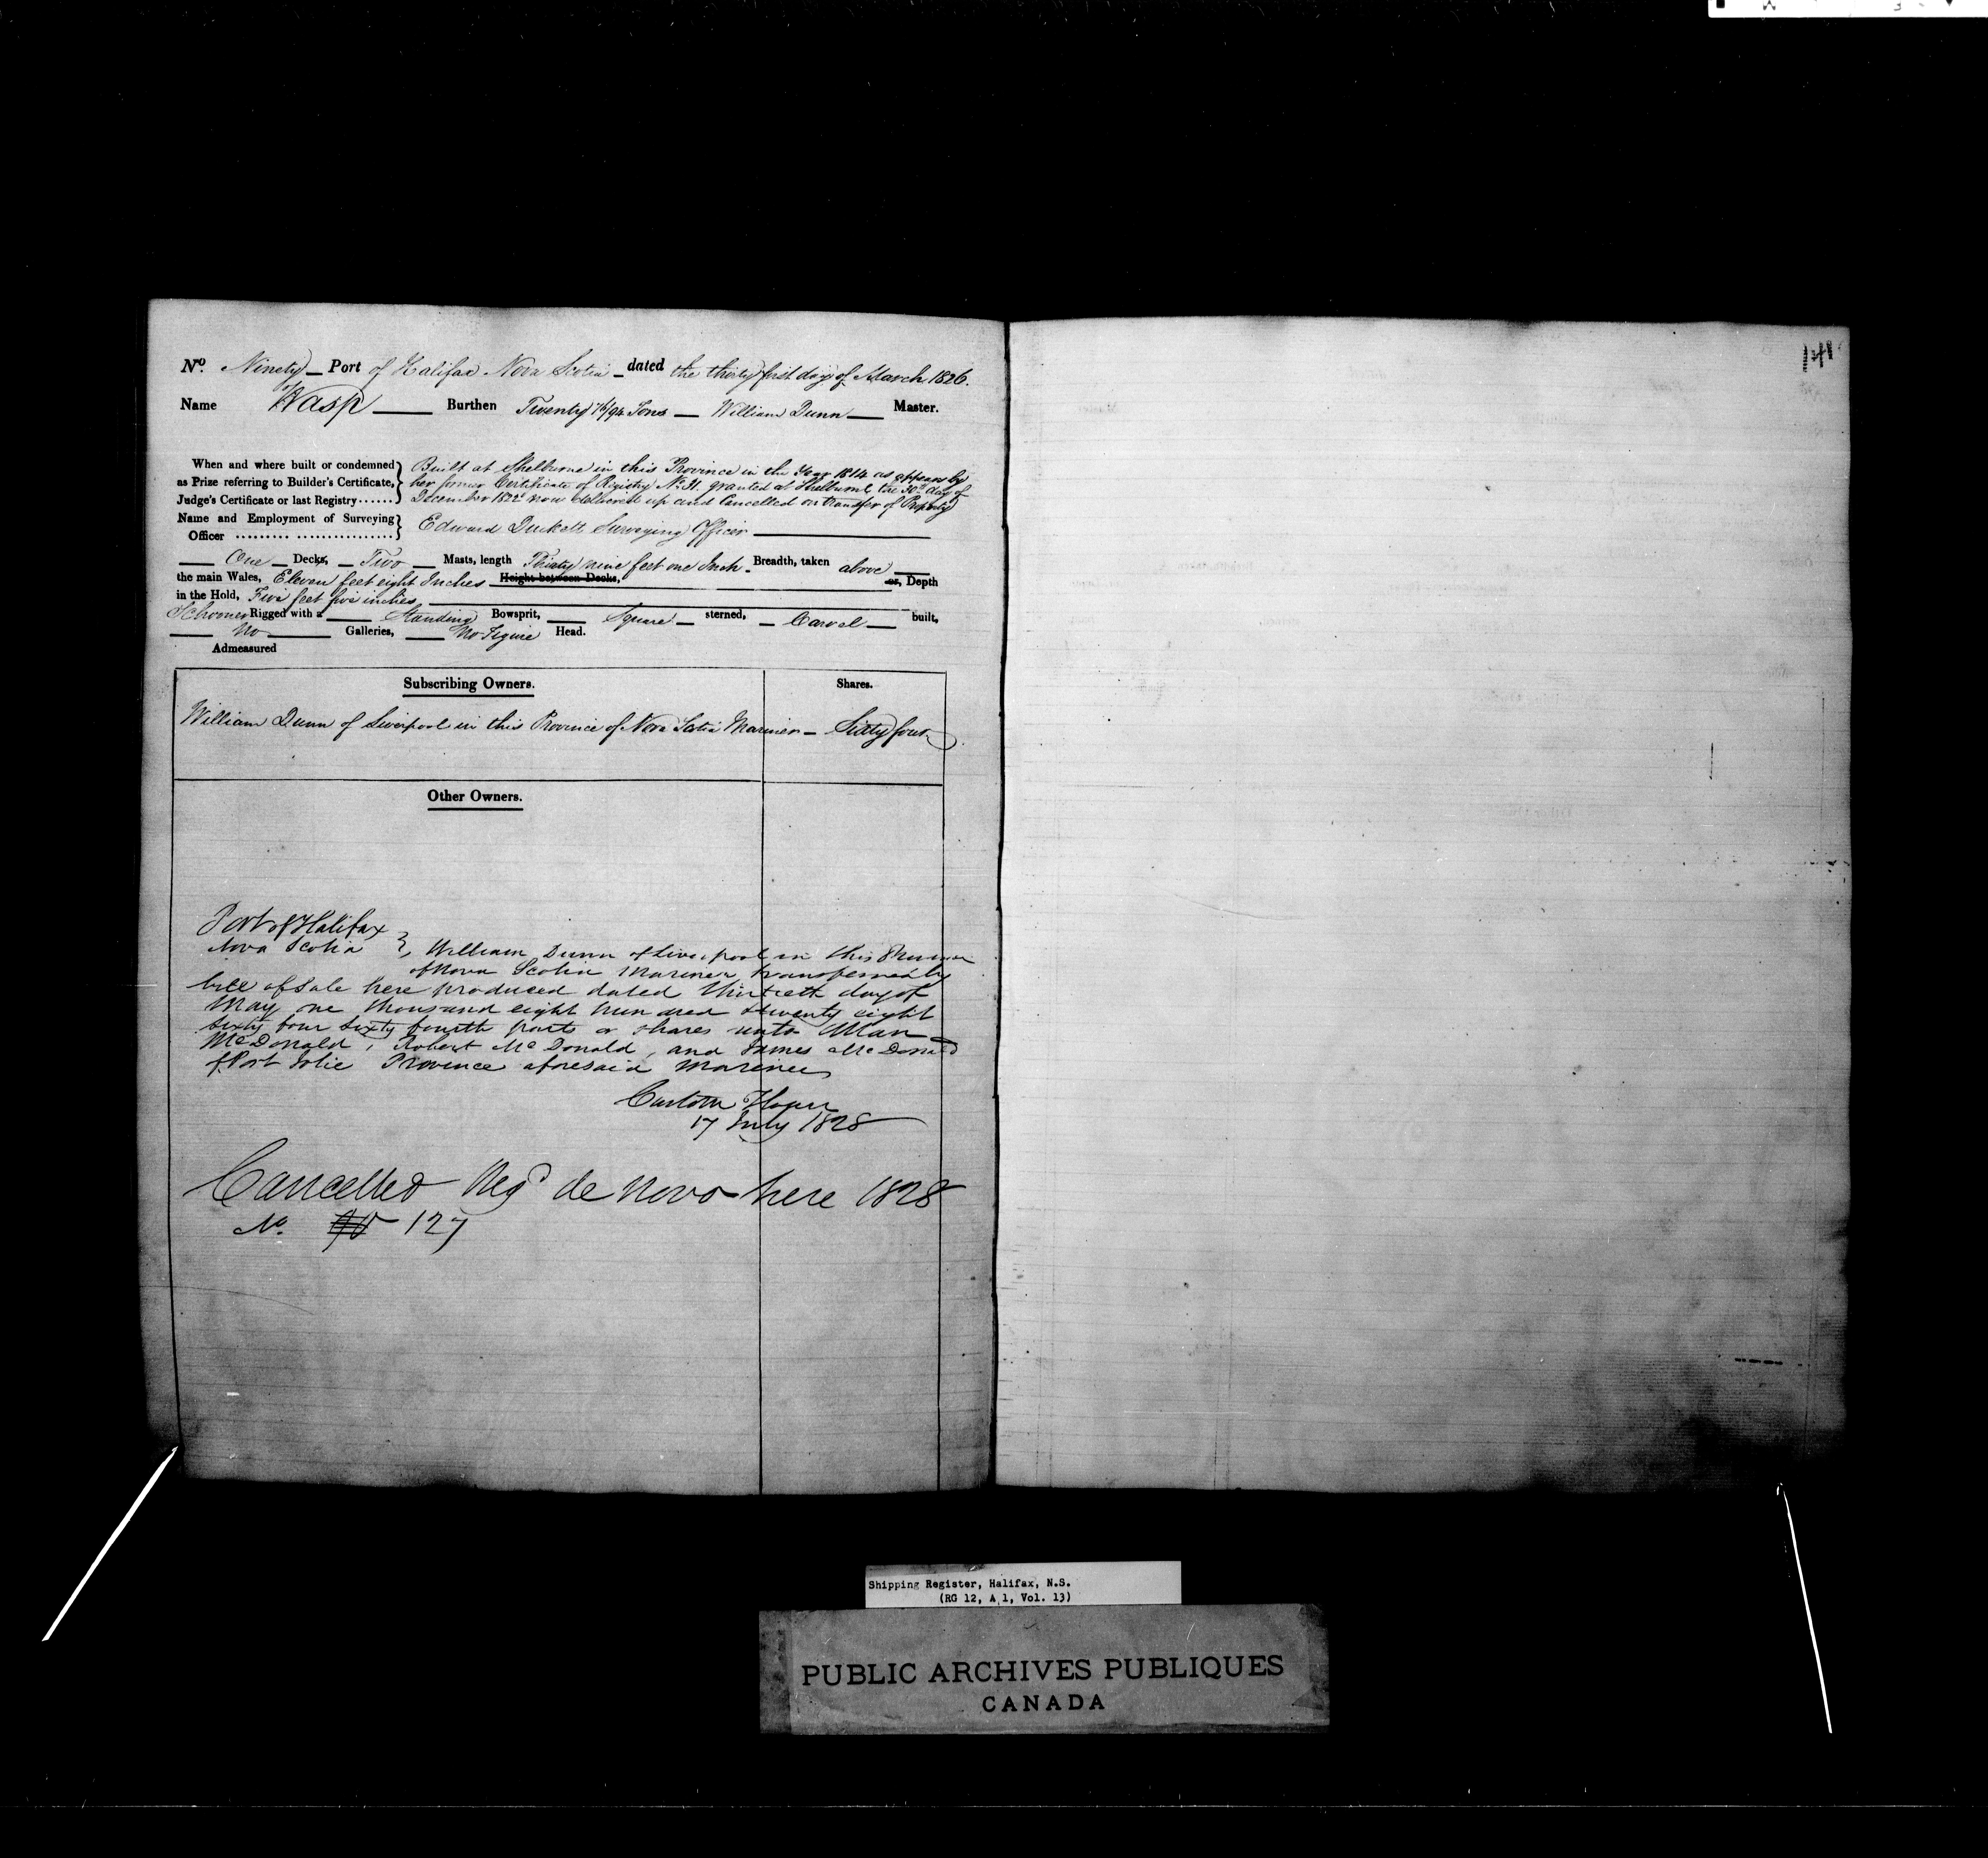 No. Ninety Port of Halifax Nova Scotia dated the thirty first day of March 1826.
Name of Wasp Burthen Twenty 76/94 Tons William Dunn Master.
When and where built or condemned as Prize referring to Builder's Certificate, Judge's Certificate or last Registry......
Built at Shelburne in this Province in the Year 1814 as appears by
her former Certificate of Registry No. 31 granted at Shelburne the 30th day of
December 1822 now delivered up and Cancelled on transfer of Property
Name and Employment of Surveying Officer
Edward Duckett Surveying Officer
One Decks, Two Masts, length Thirty nine feet one Inch. Breadth, taken above
the main Wales, Eleven feet eight Inches Height between Decks, or, Depth
in the Hold, Five feet five inches
Schooner Rigged with a Standing Bowsprit, Square sterned, Carvel built,
No Galleries, No Figure Head.
Admeasured
Subscribing Owners. Shares.
William Dunn of Liverpool in this Province of Nova Scotia Mariner Sixty four
Other Owners.
Port of Halifax
Nova Scotia } William Dunn of Liverpool in this Province
of Nova Scotia Mariner transferred by
bill of sale here produced dated thirtieth day of
May one thousand eight hundred & twenty eight
Sixty four Sixty fourth parts or shares unto Allan
McDonald, Robert McDonald, and James McDonald
of Port Jolie Province aforesaid Mariners
Custom House
17 July 1828
Cancelled Regd de novo here 1828
No. 90 127
141
Shipping Register, Halifax, N.S.
(RG 12, A 1, Vol. 13)
PUBLIC ARCHIVES PUBLIQUES
CANADA